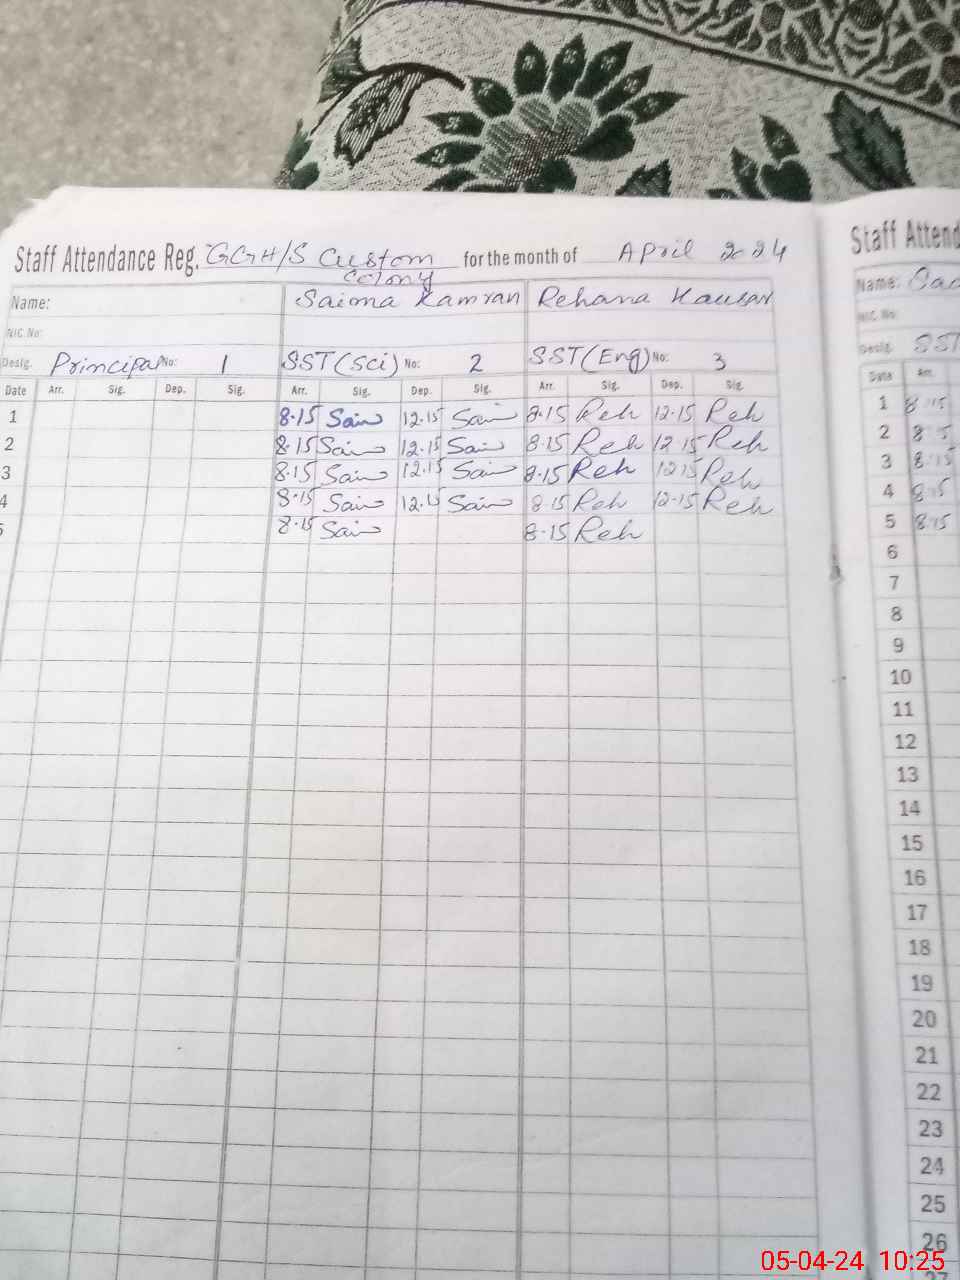 Staff Attendance Reg. GGH/S Custom Colony for the month of April 2024
Name: Saima Kamran Rehana Kausar
NIC. No:
Desig. Principal No: 1 SST (Sci) No: 2 SST (Eng) No: 3
Date Arr. Sig. Dep. Sig. Arr. Sig. Dep. Sig. Arr. Sig. Dep. Sig.
1 8.15 Sai 12.15 Sai 8.15 Reh 12.15 Reh
2 8.15 Sai 12.15 Sai 8.15 Reh 12.15 Reh
3 8.15 Sai 12.15 Sai 8.15 Reh 12.15 Reh
4 8.15 Sai 12.15 Sai 8.15 Reh 12.15 Reh
5 8.15 Sai 8.15 Reh
Staff Attend
Name:
NIC. No:
Desig. SST
Date Arr.
1 8.15
2 8 5
3 8.15
4 8.15
5 8.15
6
7
8
9
10
11
12
13
14
15
16
17
18
19
20
21
22
23
24
25
26
27
05-04-24 10:25